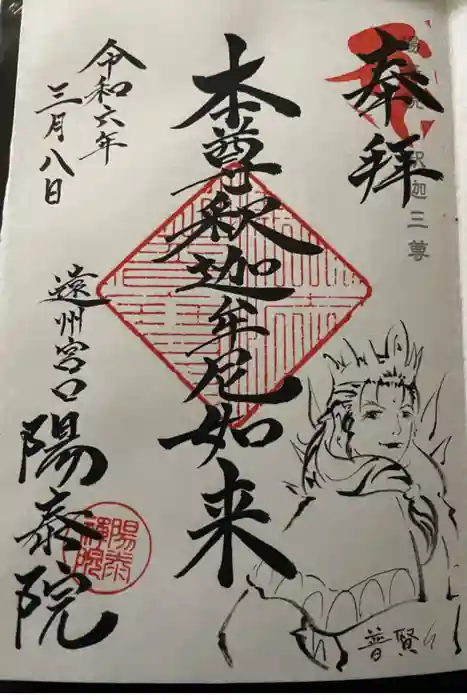 奉拝
釈迦三尊
本尊釈迦牟尼如来
令和六年
三月八日
遠州宮口
陽泰院
陽泰禅院
普賢